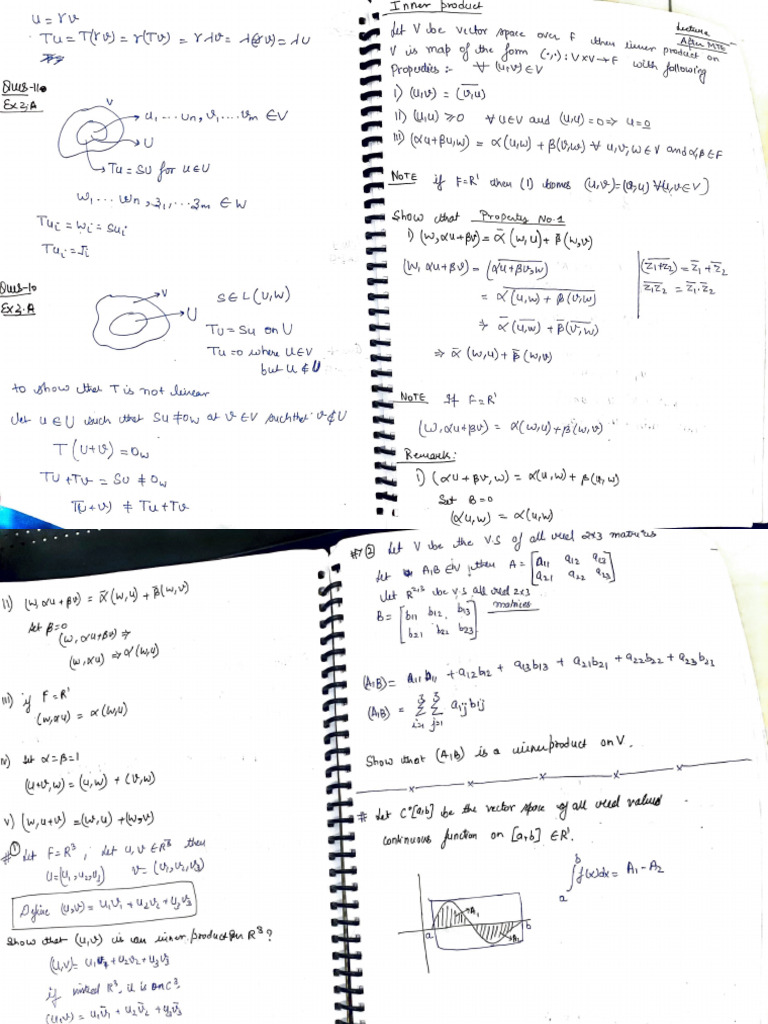 u = rv
Tu = T(rv) = r(Tv) = rλv = λ(rv) = λu
Ques-11
Ex 3.A
V
u1 ... un, v1 ... vm ∈ V
U
Tu = Su for u ∈ U
w1 ... wn, z1, ... zm ∈ W
Tui = wi = Sui
Ques-10
Ex 3.A
V
U
S ∈ L(U,W)
Tu = Su on U
Tu = 0 where u ∈ V
but u ∉ U
to show that T is not linear
let u ∈ U such that Su ≠ 0w at v ∈ V such that v ∉ U
T(u+v) = 0w
Tu + Tv = Su ≠ 0w
T(u+v) ≠ Tu + Tv
Inner product
Lecture
After MTE
Let V be vector space over F then inner product on
V is map of the form (·,·): V×V → F with following
Properties :- ∀ (u,v) ∈ V
I) (u,v) = \overline{(v,u)}
II) (u,u) ≥ 0 ∀ u∈V and (u,u) = 0 => u = 0
III) (αu+βv,w) = α(u,w) + β(v,w) ∀ u,v,w ∈ V and α,β ∈ F
NOTE if F=R' then (I) becomes (u,v) = (v,u) ∀(u,v ∈ V)
Show that Property No.1
i) (w,αu+βv) = ᾱ(w,u) + β(w,v)
(w, αu+βv) = \overline{(αu+βv,w)}
= \overline{α(u,w) + β(v,w)}
=> ᾱ\overline{(u,w)} + β̄\overline{(v,w)}
=> ᾱ(w,u) + β̄(w,v)
\overline{(z1+z2)} = z̄1 + z̄2
\overline{z1z2} = z̄1·z̄2
NOTE If F=R'
(w,αu+βv) = α(w,u) + β(w,v)
Remark:
i) (αu+βv,w) = α(u,w) + β(v,w)
Set B=0
(αu,w) = α(u,w)
ii) (w,αu+βv) = ᾱ(w,u) + β̄(w,v)
Set β=0
(w,αu+βv) =>
(w,αu) => ᾱ(w,u)
iii) if F=R'
(w,αu) = α(w,u)
iv) Set α=β=1
(u+v,w) = (u,w) + (v,w)
v) (w,u+v) = (w,u) + (w,v)
# ① Let F=R³, let u,v ∈ R³ then
u=(u1,u2,u3) v=(v1,v2,v3)
Define (u,v) = u1v1 + u2v2 + u3v3
Show that (u,v) is an inner product for R³?
(u,v) = u1v1 + u2v2 + u3v3
if instead R³, u is on C³
(u,v) = u1v̄1 + u2v̄2 + u3v̄3
# ② Let V be the V.S of all real 2x3 matrices
Let A,B ∈ V, then A = [a11 a12 a13
a21 a22 a23]
Let R^{2,3} be v.s all real 2x3
matrices
B = [b11 b12 b13
b21 b22 b23]
(A,B) = a11b11 + a12b12 + a13b13 + a21b21 + a22b22 + a23b23
(A,B) = Σ Σ aijbij
i=1 j=1
Show that (A,B) is a inner product on V.
# Let C°[a,b] be the vector space of all real valued
continuous function on [a,b] ∈ R'.
∫_a^b f(x)dx = A1 - A2
a
A1
b
A2